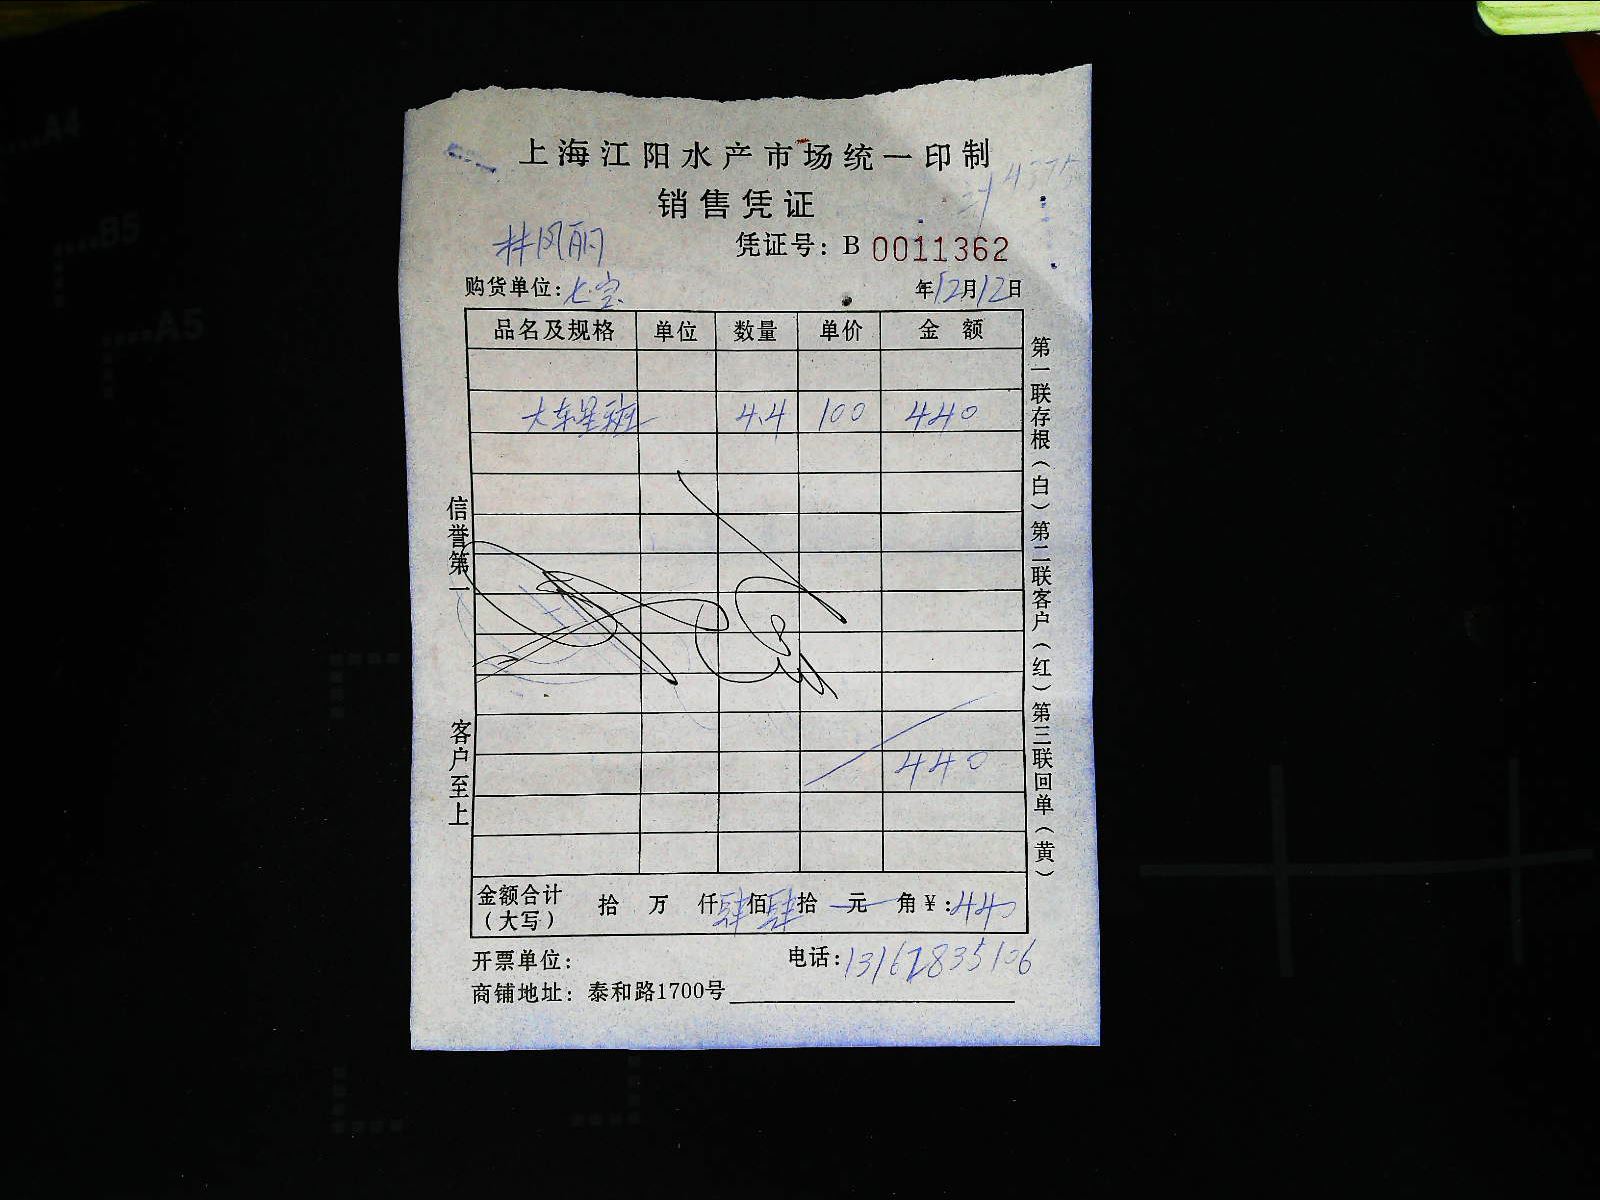 上海江阳水产市场统一印制
销售凭证
井风丽
凭证号：B 0011362
购货单位：七宝
年12月12日
品名及规格 单位 数量 单价 金额
大东星斑 4.4 100 440
440
金额合计（大写） 拾 万 仟肆佰肆拾 元 角￥：440
开票单位：
电话：13162835106
商铺地址：泰和路1700号
信誉第一
客户至上
第一联存根（白）第二联客户（红）第三联回单（黄）
A4
B5
A5